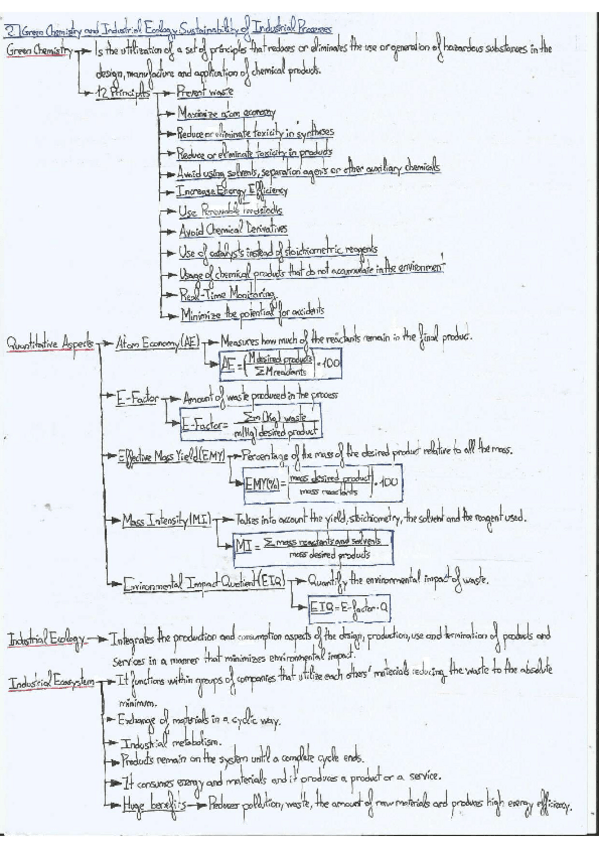 2. Green Chemistry and Industrial Ecology: Sustainability of Industrial Processes
Green Chemistry → Is the utilization of a set of principles that reduces or eliminates the use or generation of hazardous substances in the
design, manufacture and application of chemical products.
→ 12 Principles → Prevent waste
→ Maximize atom economy
→ Reduce or eliminate toxicity in syntheses
→ Reduce or eliminate toxicity in products
→ Avoid using solvents, separation agents or other auxiliary chemicals
→ Increase Energy Efficiency
→ Use Renewable feedstocks
→ Avoid Chemical Derivatives
→ Use of catalysts instead of stoichiometric reagents
→ Usage of chemical products that do not accumulate in the environment
→ Real-Time Monitoring.
→ Minimize the potential for accidents
Quantitative Aspects → Atom Economy (AE) → Measures how much of the reactants remain in the final product.
AE = (M desired products / Σ M reactants) · 100
→ E-Factor → Amount of waste produced in the process
E-Factor = Σ m (Kg) waste / m (Kg) desired product
→ Effective Mass Yield (EMY) → Percentage of the mass of the desired product relative to all the mass.
EMY(%) = (mass desired product / mass reactants) · 100
→ Mass Intensity (MI) → Takes into account the yield, stoichiometry, the solvent and the reagent used.
MI = Σ mass reactants and solvents / mass desired products
→ Environmental Impact Quotient (EIQ) → Quantify the environmental impact of waste.
EIQ = E-factor · Q
Industrial Ecology → Integrates the production and consumption aspects of the design, production, use and termination of products and
services in a manner that minimizes environmental impact.
Industrial Ecosystem → It functions within groups of companies that utilize each others' materials reducing the waste to the absolute
minimum.
→ Exchange of materials in a cyclic way.
→ Industrial metabolism.
→ Products remain on the system until a complete cycle ends.
→ It consumes energy and materials and it produces a product or a service.
→ Huge benefits → Reduces pollution, waste, the amount of raw materials and produces high energy efficiency.